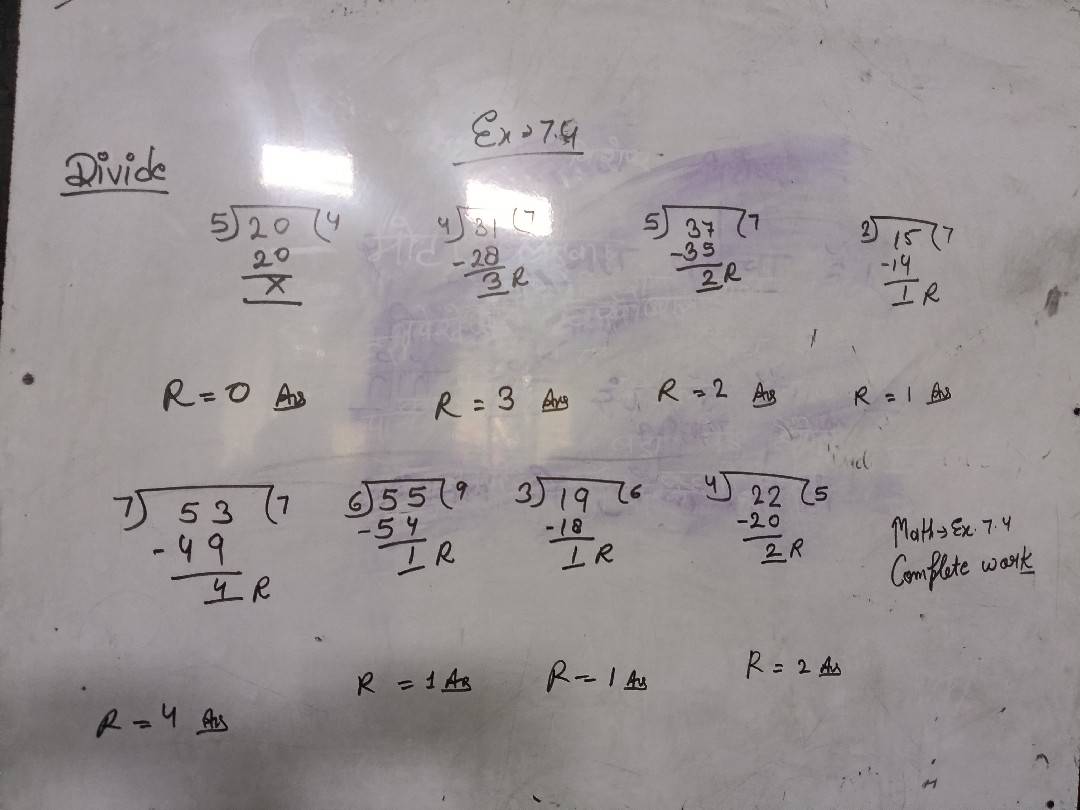 Ex→7.4
Divide
5)20(4
20
X
4)31(7
-28
3R
5)37(7
-35
2R
2)15(7
-14
1R
R=0 Ans
R=3 Ans
R=2 Ans
R=1 Ans
7)53(7
-49
4R
6)55(9
-54
1R
3)19(6
-18
1R
4)22(5
-20
2R
Math→Ex.7.4
Complete work
R=4 Ans
R=1 Ans
R=1 Ans
R=2 Ans